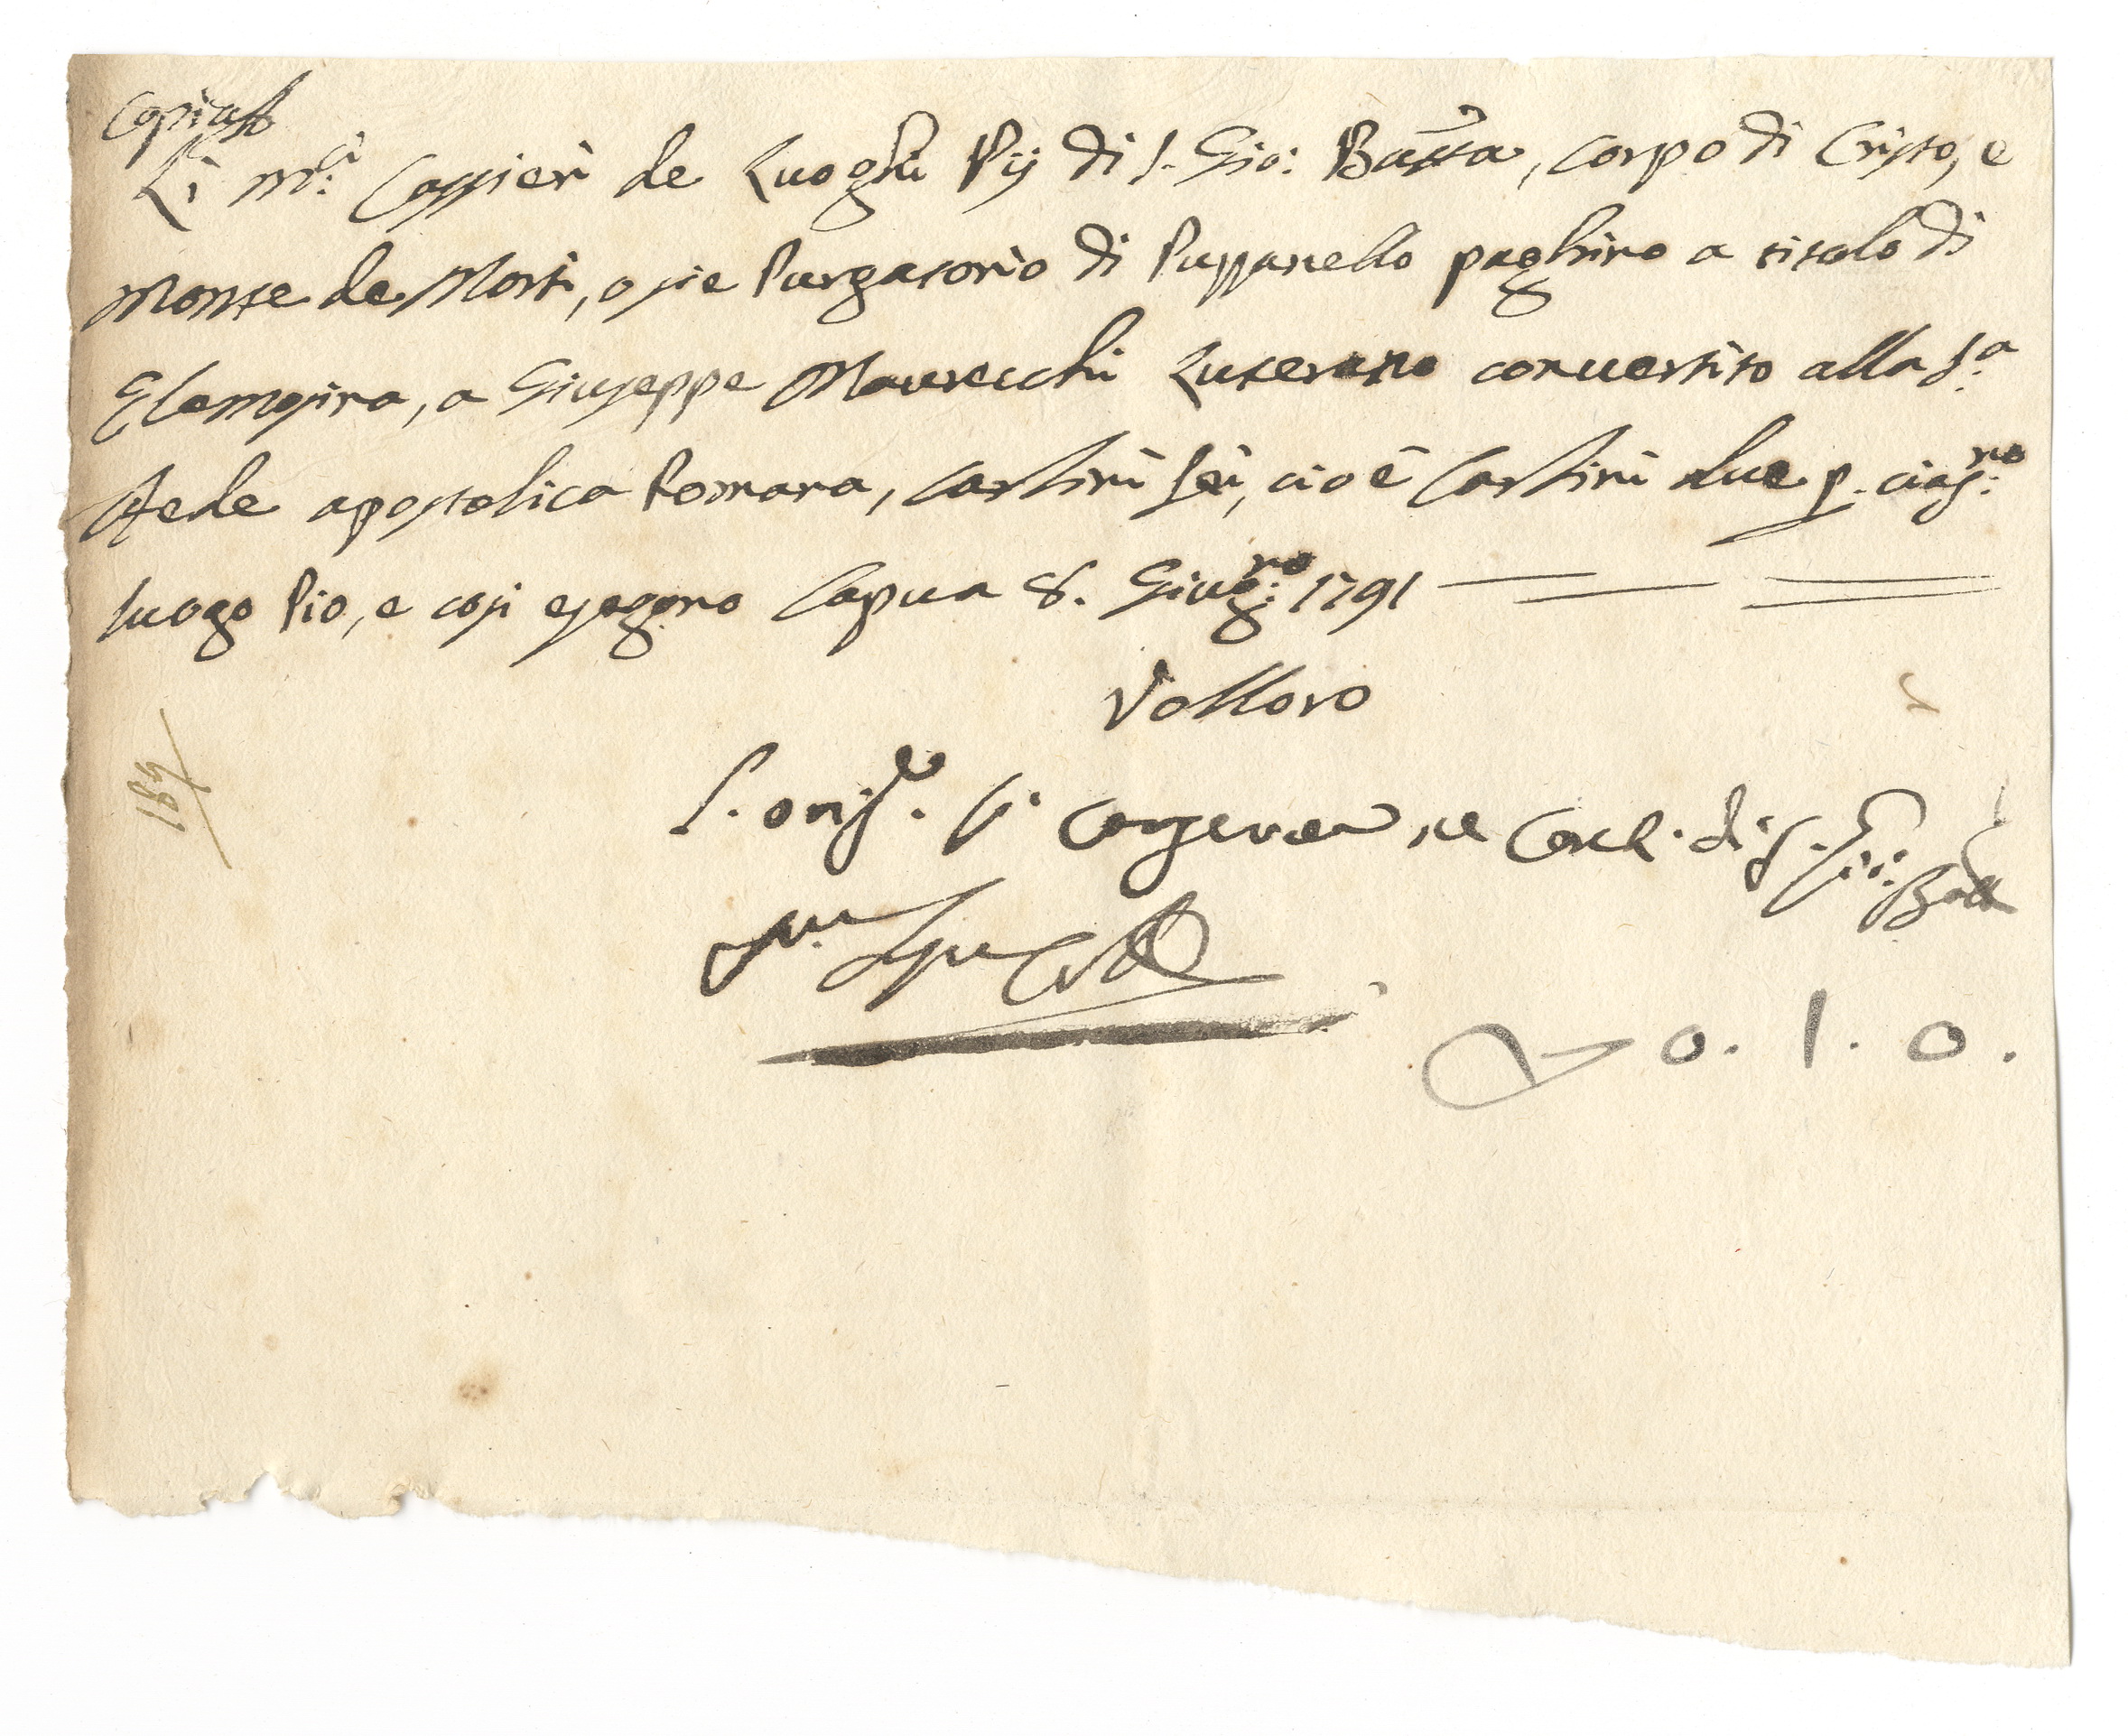 Copia
Li m:ci Cassieri de Luoghi Pij di S. Gio: Batta, Corpo di Cristo, e
Monte de Morti, o sia Purgatorio di Puppanello paghino a titolo di
Elemosina, a Giuseppe Maurecchi Luterano convertito alla S.a
Sede apostolica Romana, Carlini sei, cioè Carlini due p. cias:no
luogo Pio, e così esegano Capua 8. Giug:no 1791
Volloro
L. orig.le si conserva ne Caut. di S. Gio: Batt
189
0. 1. 0.